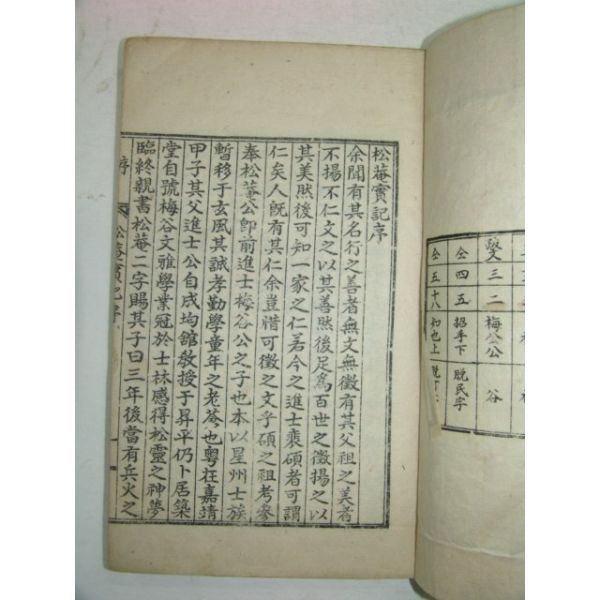 松菴實記序
余聞有其名行之善者無文無徵有其父祖之美者
不揚不仁文之以其善然後足爲百世之徵揚之以
其美然後可知一家之仁若今之進士裵碩者可謂
仁矣人旣有其仁余豈惜可徵之文乎碩之祖考參
奉松菴公卽前進士梅谷公之子也本以星州士族
暫移于玄風其誠孝勤學童年之老蒼也粤在嘉靖
甲子其父進士公自成均舘敎授于昇平仍卜居築
堂自號梅谷文雅學業冠於士林感得松靈之神夢
臨終親書松菴二字賜其子曰三年後當有兵火之
序 松菴實記序 一
三 二 梅公公 谷
仝 四 五 招手下 脫民字
仝 五 十八 知也上